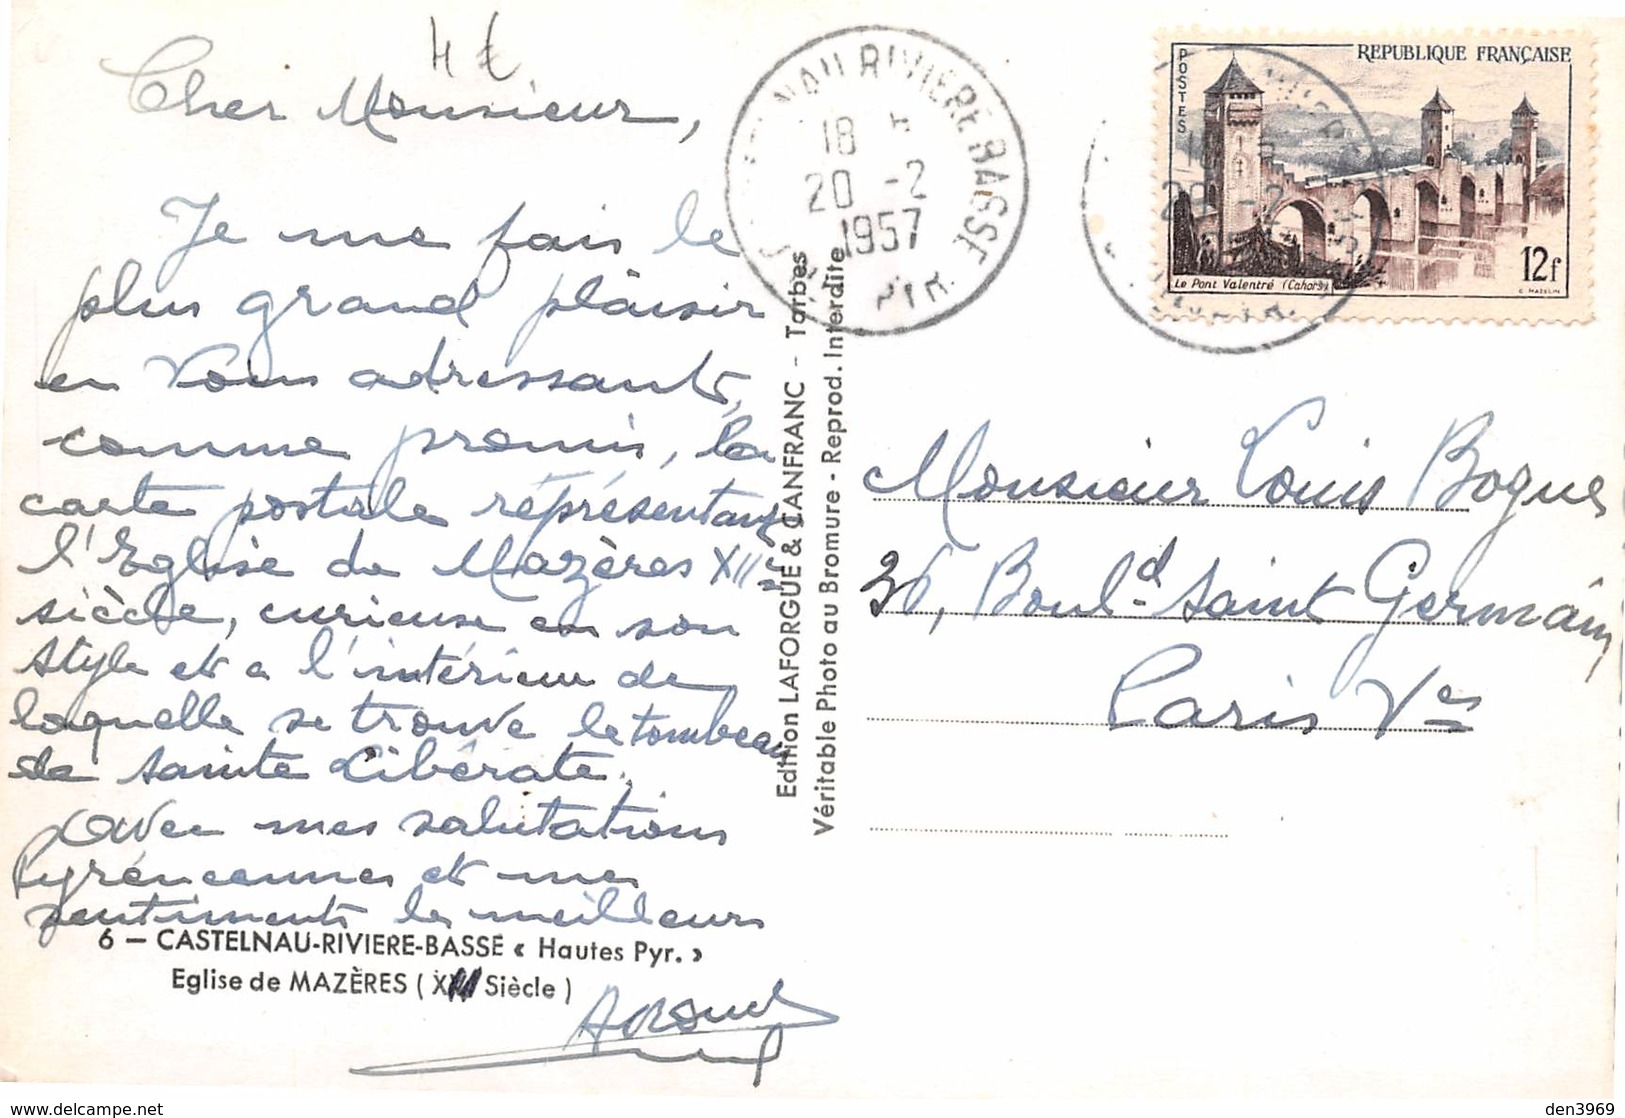 4 €
Cher Monsieur,
Je me fais le
plus grand plaisir
en vous adressant,
comme promis, la
carte postale représentant
l'Eglise de Mazères XIIe
siècle, curieuse en son
style et a l'intérieur de
laquelle se trouve le tombeau
de Sainte Libérate.
Avec mes salutations
Pyrénéennes et mes
sentiments les meilleurs
6 – CASTELNAU-RIVIERE-BASSE « Hautes Pyr. »
Eglise de MAZÈRES ( Siècle )
Edition LAFORGUE & CANFRANC - Tarbes
Véritable Photo au Bromure - Reprod. Interdite
NAU RIVIERE BASSE
18
20 -2
1957
PYR.
POSTES
REPUBLIQUE FRANÇAISE
Le Pont Valentré (Cahors)
12f
C. MAZELIN
Monsieur Louis Bogues
36, Boul.d Saint Germain
Paris Ves
delcampe.net
den3969